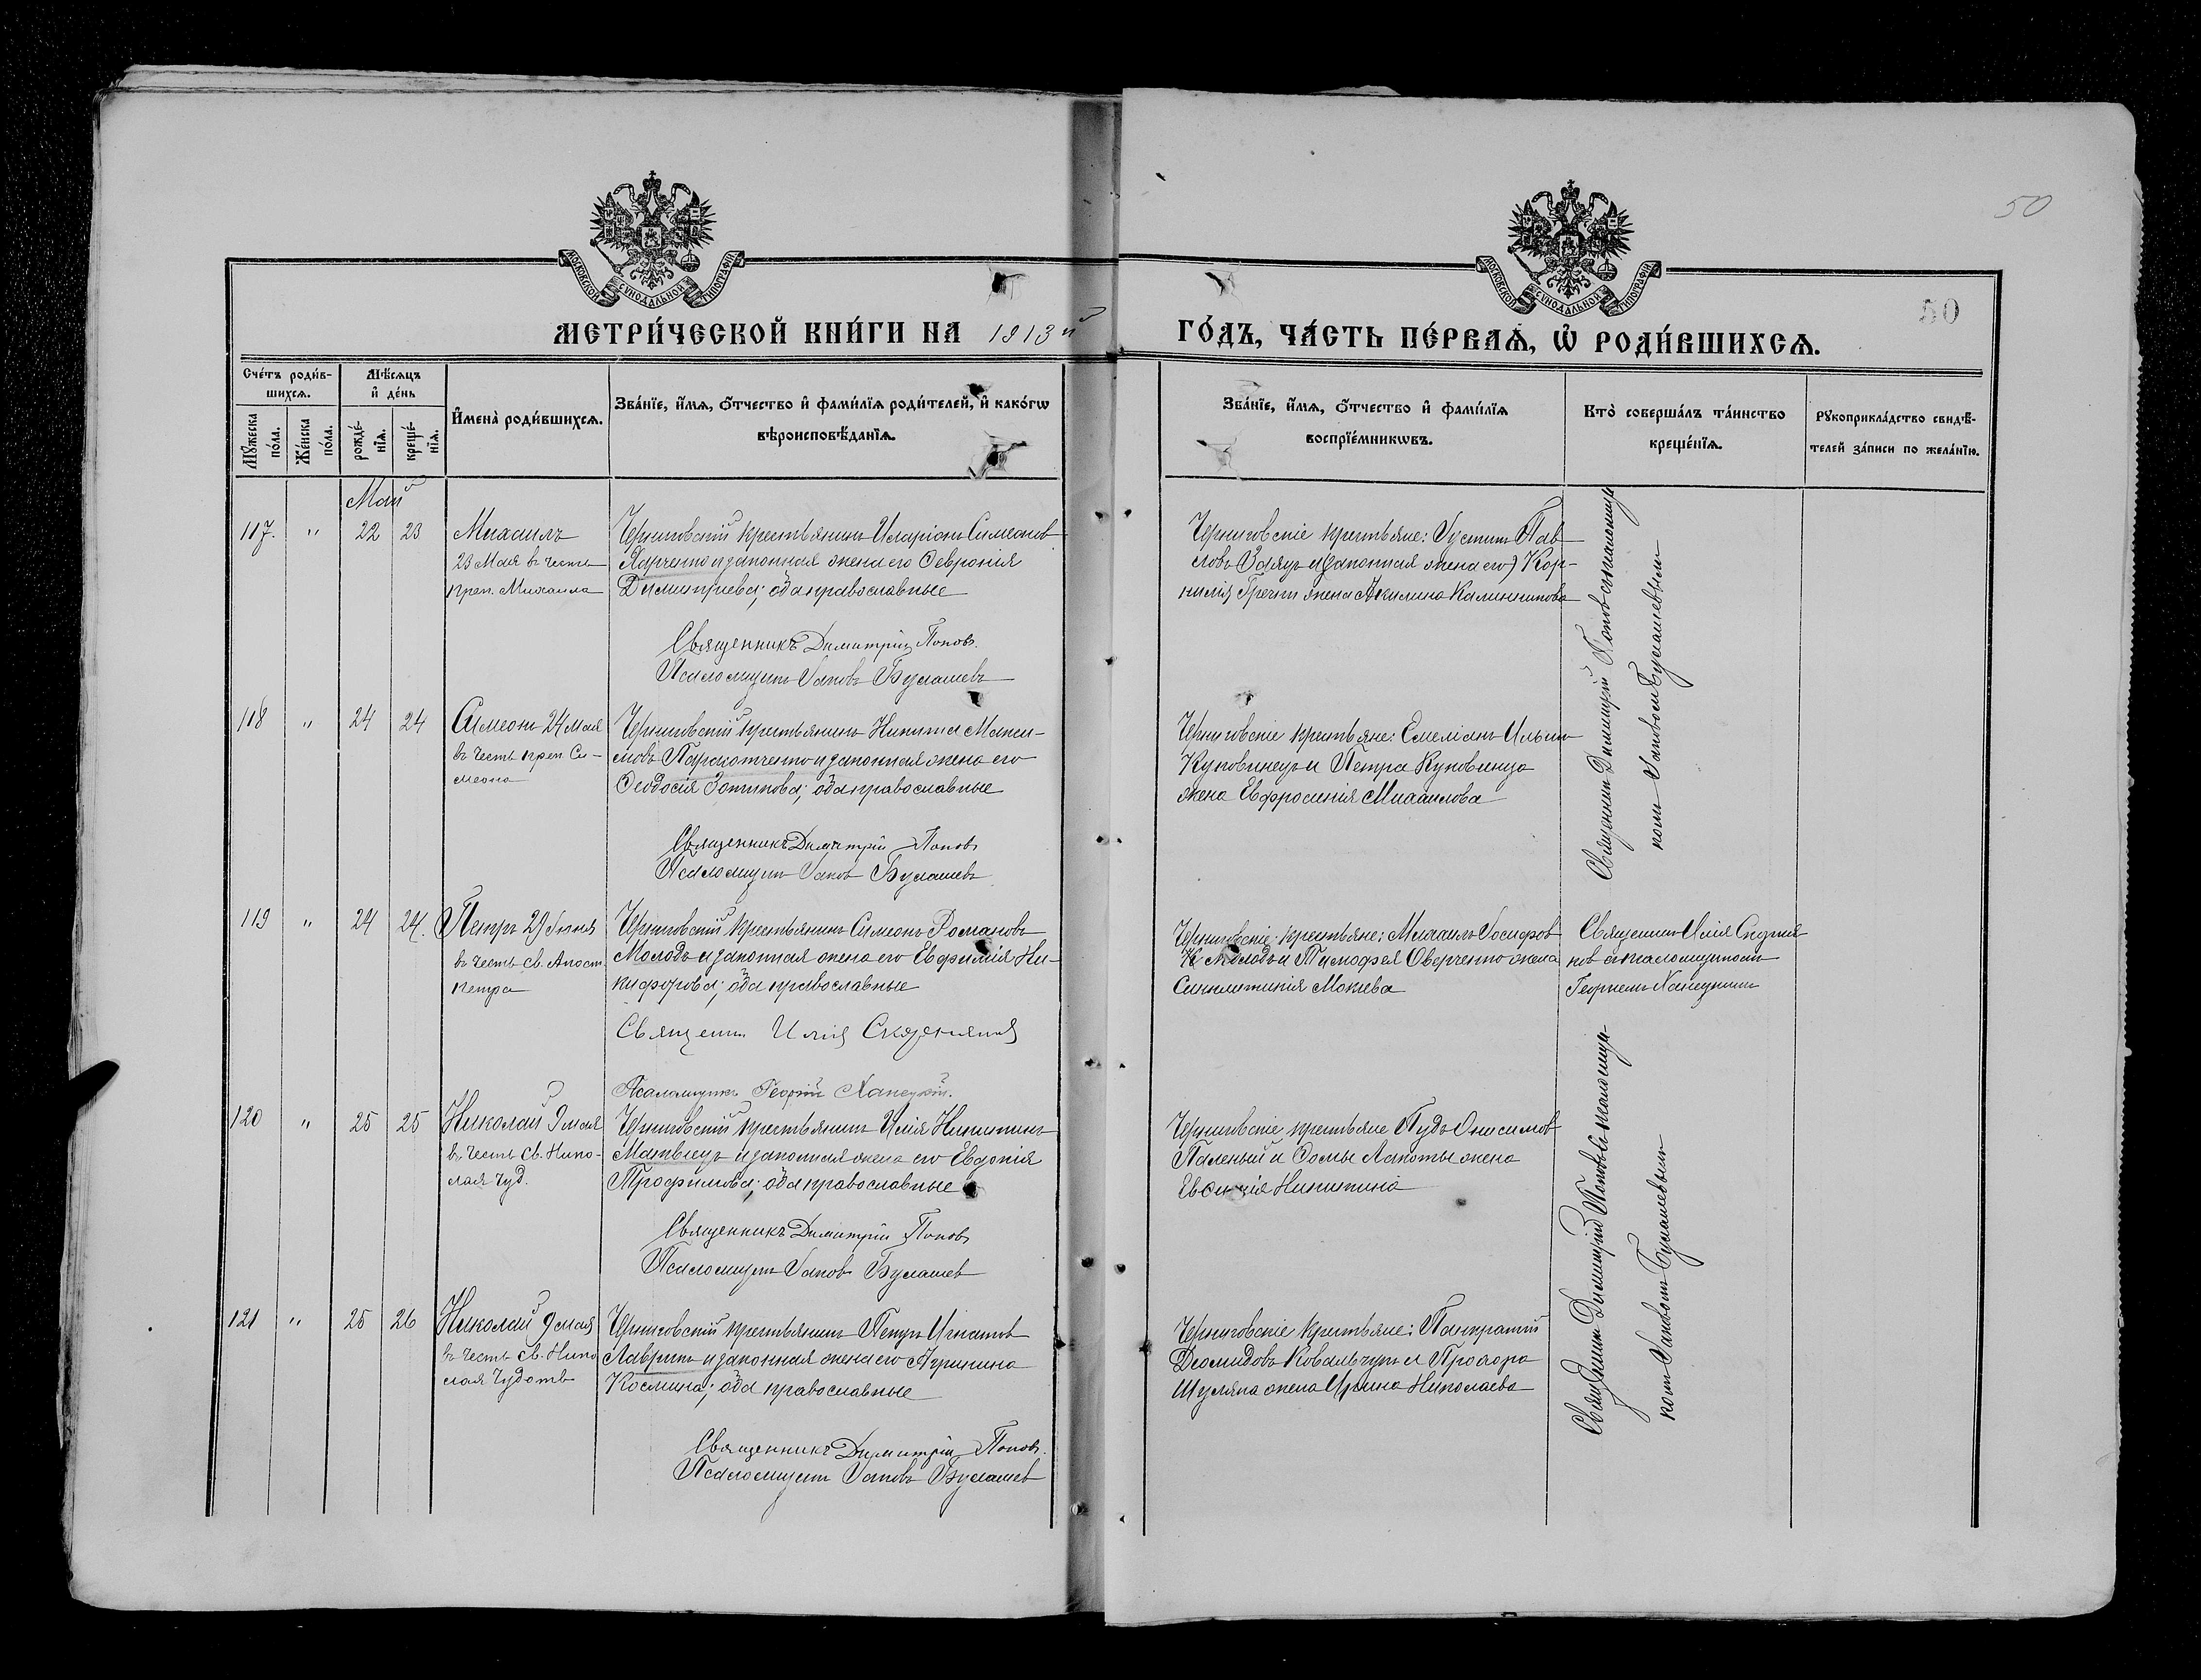 50
50
МОСКОВСКОЙ СУНОДАЛЬНОЙ ТИПОГРАФІИ
МОСКОВСКОЙ СУНОДАЛЬНОЙ ТИПОГРАФІИ
МЕТРИ́ЧЕСКОЙ КНИ́ГИ НА 1913 й
ГО́ДЪ, ЧА́СТЬ ПЕ́РВАѦ, Ѡ҆ РОДИ́ВШИХСѦ.
Сче́тъ роди́в-
шихсѧ.
Мꙋ́жеска по́ла.
Же́нска по́ла.
Мѣ́сѧцъ
и҆ де́нь
рожде́-
нїѧ.
креще́-
нїѧ.
И҆мена̀ роди́вшихсѧ.
Зва́нїе, и҆́мѧ, ѻ҆́тчество и҆ фами́лїѧ роди́телей, и҆ како́гѡ
вѣроисповѣ́данїѧ.
Зва́нїе, и҆́мѧ, ѻ҆́тчество и҆ фами́лїѧ
воспрїе́мникѡвъ.
Кто̀ соверша́лъ та́инство
креще́нїѧ.
Рꙋкоприкла́дство свидѣ́-
телей за́писи по жела́нїю.
Май
117. " 22 23
Михаилъ
23 Мая въ честь
преп. Михаила
Черниговскій крестьянинъ Иларіонъ Симеонов
Харченко и законная жена его Февронія
Димитріева; оба православные
Священникъ Димитрій Попов.
Псаломщикъ Іаковъ Булашевъ
Черниговскіе крестьяне: Іустинъ Пав-
ловъ Заяцъ и (законная жена его) Кор-
нилія Гречки жена Акилина Калинникова
Священникъ Димитрій Поповъ съ псаломщи-
комъ Іаковомъ Булашевымъ
118 " 24 24
Симеонъ 24 мая
въ честь преп. Си-
меона
Черниговскій крестьянинъ Никита Макси-
мовъ и законная жена его
Феодосія Зотикова; оба православные
Священникъ Димитрій Поповъ
Псаломщикъ Іаков Булашевъ
Черниговскіе крестьяне: Емеліанъ Ильинъ
Куковинецъ и Петра Куковинца
жена Евфросинія Михаилова
119 " 24 24.
Петръ 29 Іюня
въ честь св. Апост.
Петра
Черниговскій крестьянинъ Симеонъ Романовъ
Молодъ и законная жена его Евфимія Ни-
кифорова; оба православные
Священникъ Илія
Псаломщикъ Георгій Ханецкій.
Черниговскіе крестьяне: Михаилъ Іосифов
Молодъ и Тимофея Оверченко жена
Синклитикія Мокіева
Священникъ Илія
ков съ псаломщикомъ
Георгіемъ Ханецкимъ
120 " 25 25
Николай 9 мая
въ честь св. Нико-
лая чуд.
Черниговскій крестьянинъ Илія Никитинъ
Матвіецъ и законная жена его Евдокія
Трофимова; оба православные
Священникъ Димитрій Поповъ
Псаломщикъ Іаковъ Булашев
Черниговскіе крестьяне Пудъ Онисимов
Паленый и Фомы Лакоты жена
Никитина
Священникъ Димитрій Поповъ съ псаломщи-
комъ Іаковомъ Булашевымъ
121 " 25 26
Николай 9 мая
въ честь св. Нико
лая Чудотв
Черниговскій крестьянинъ Петръ Игнатов
Лавринъ и законная жена его Агрипина
Космина; оба православные
Священникъ Димитрій Поповъ.
Псаломщикъ Іаковъ Булашев
Черниговскіе крестьяне: Панкратій
Диомидовъ Ковальчукъ и Прохора
Шуляка жена Ирина Николаева